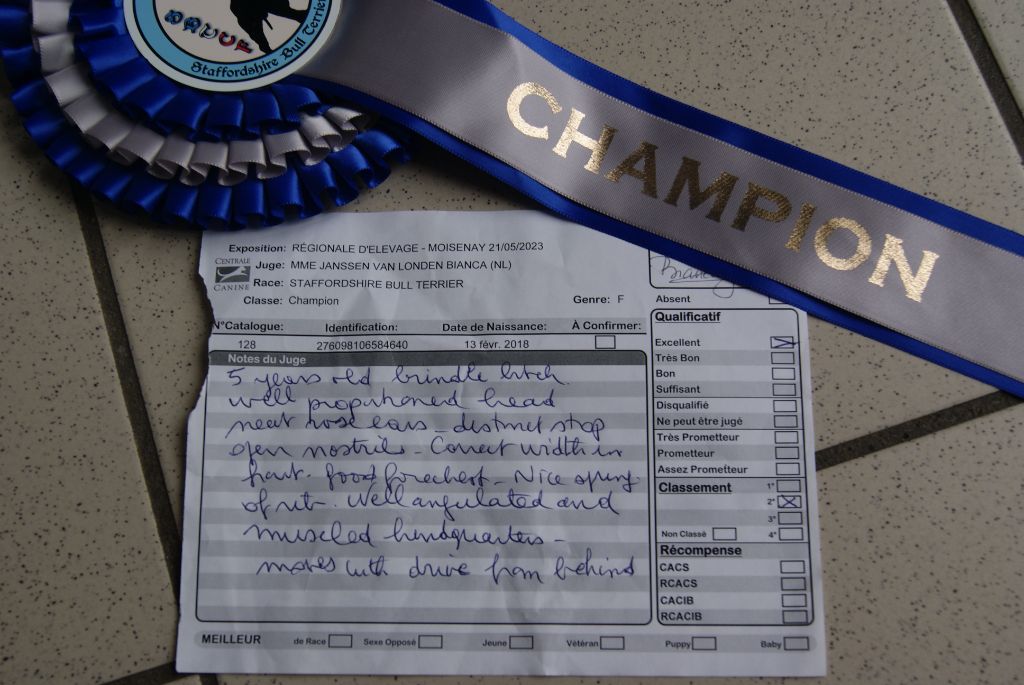 Staffordshire Bull Terrier
CHAMPION
Exposition: RÉGIONALE D'ELEVAGE - MOISENAY 21/05/2023
CENTRALE CANINE
Juge: MME JANSSEN VAN LONDEN BIANCA (NL)
Race: STAFFORDSHIRE BULL TERRIER
Classe: Champion Genre: F
N°Catalogue: Identification: Date de Naissance: À Confirmer:
128 276098106584640 13 févr. 2018
Notes du Juge
5 years old brindle bitch.
well proportioned head
neat rose ears - distinct stop
open nostrils - Correct width in
front. good forechest - Nice spring
of rib - Well angulated and
muscled hindquarters -
moves with drive from behind
Absent
Qualificatif
Excellent
Très Bon
Bon
Suffisant
Disqualifié
Ne peut être jugé
Très Prometteur
Prometteur
Assez Prometteur
Classement 1°
2°
3°
Non Classé 4°
Récompense
CACS
RCACS
CACIB
RCACIB
MEILLEUR de Race Sexe Opposé Jeune Vétéran Puppy Baby